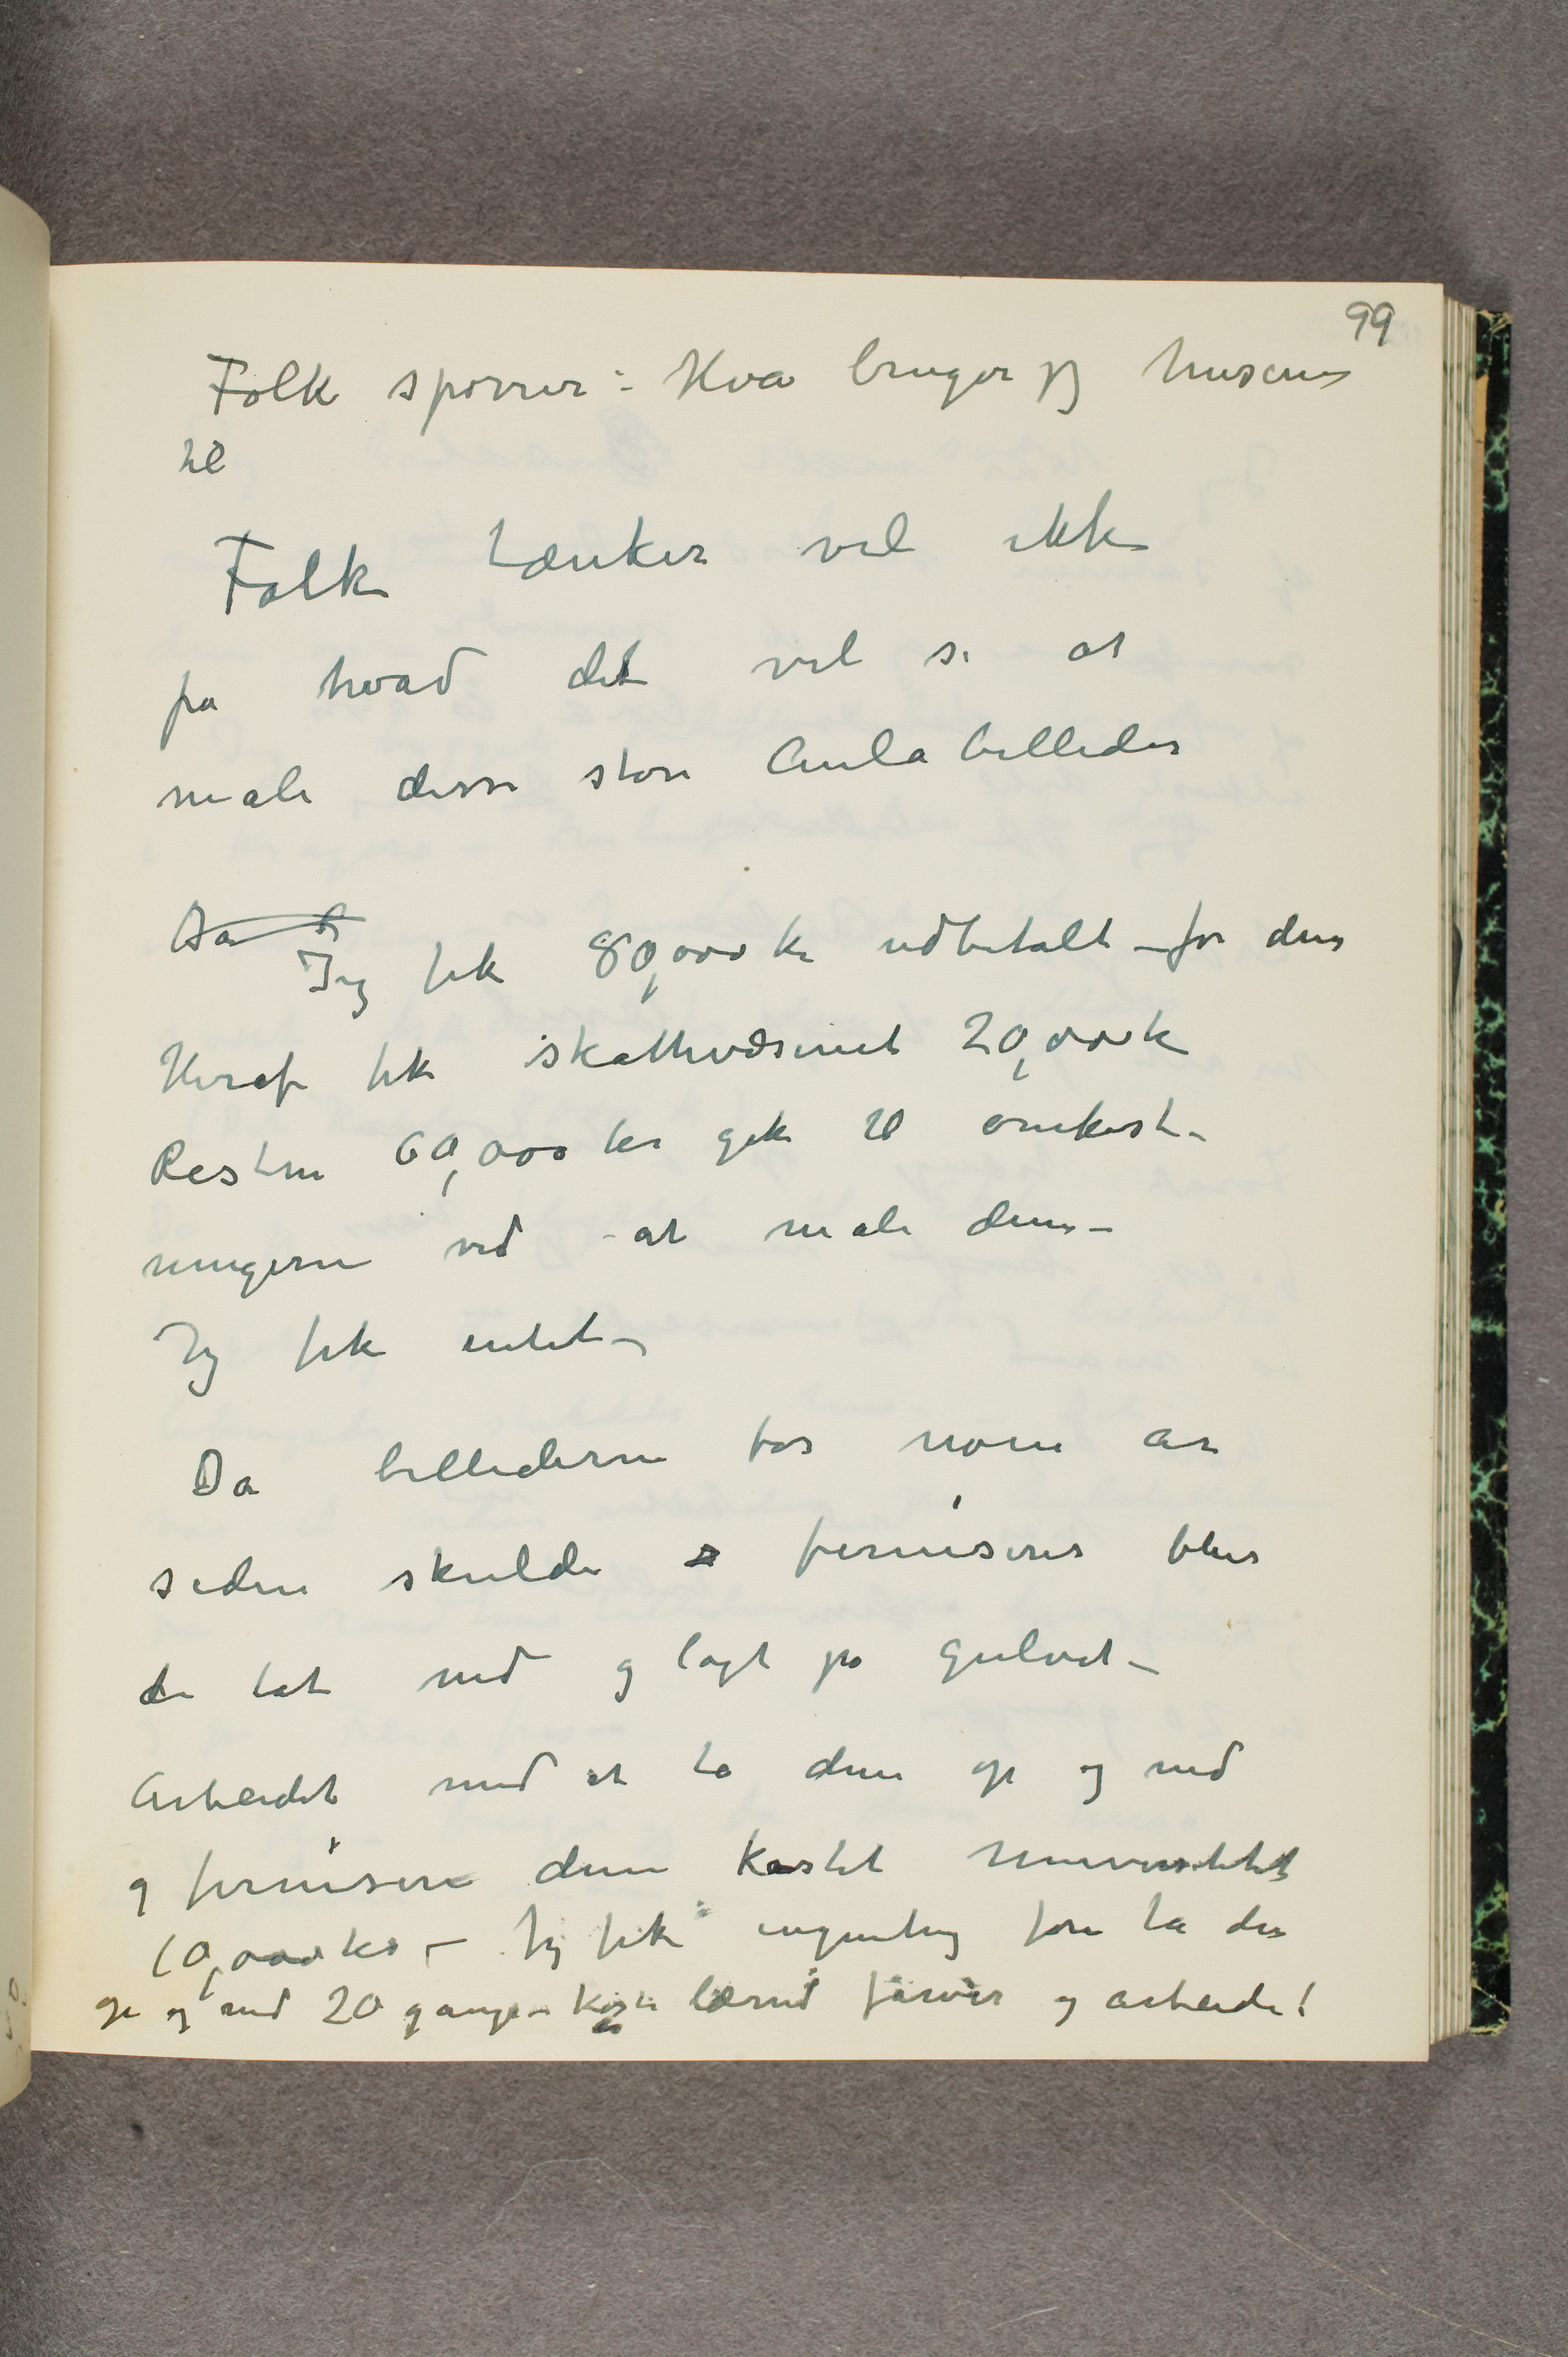 99
Folk spørrer: Hva bruger jeg husene
til
Folk tænker vel ikke
på hvad det vil si at
male disse store Aulabilleder
Da
Jeg fik 80,000 kr udbetalt – for dem
Heraf fik skattevæsenet 20,000 k
Resten 60,000 kr gik til omkost-
ningerne ved at male dem –
Jeg fik intet –
Da billederne for nogne år
siden skulde ferniseres blev
de tat ned og lagt på gulvet –
Arbeidet med at ta dem op og ned
og fernisere dem kostet universitetet
10,000 kr – Jeg fik ingenting for å ta dem
op og ned 20 gange – koste lærred farver og arbeide!